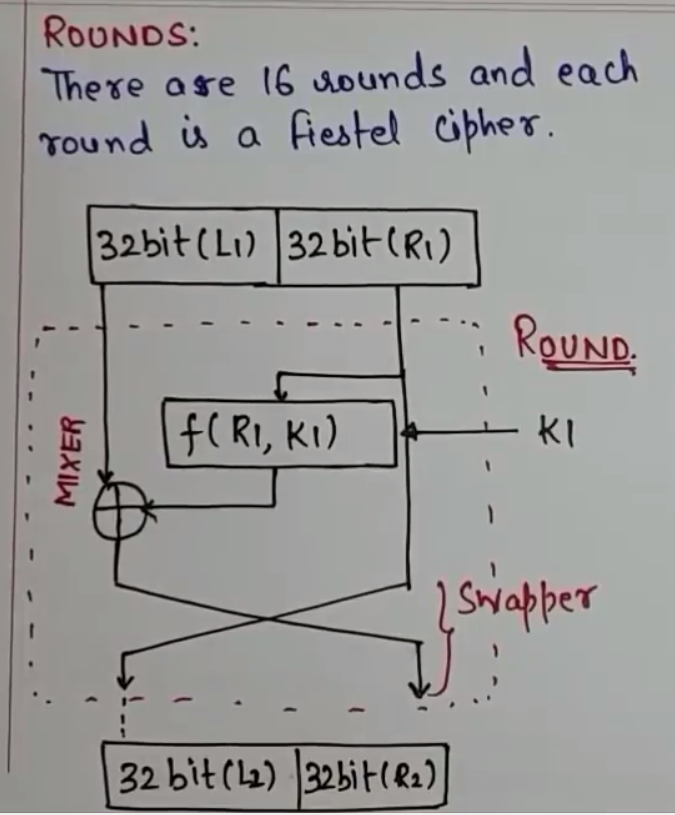 ROUNDS:
There are 16 rounds and each
round is a fiestel cipher.
32bit(L1) 32bit(R1)
ROUND.
f(R1, K1)
K1
MIXER
Swapper
32bit(L2) 32bit(R2)